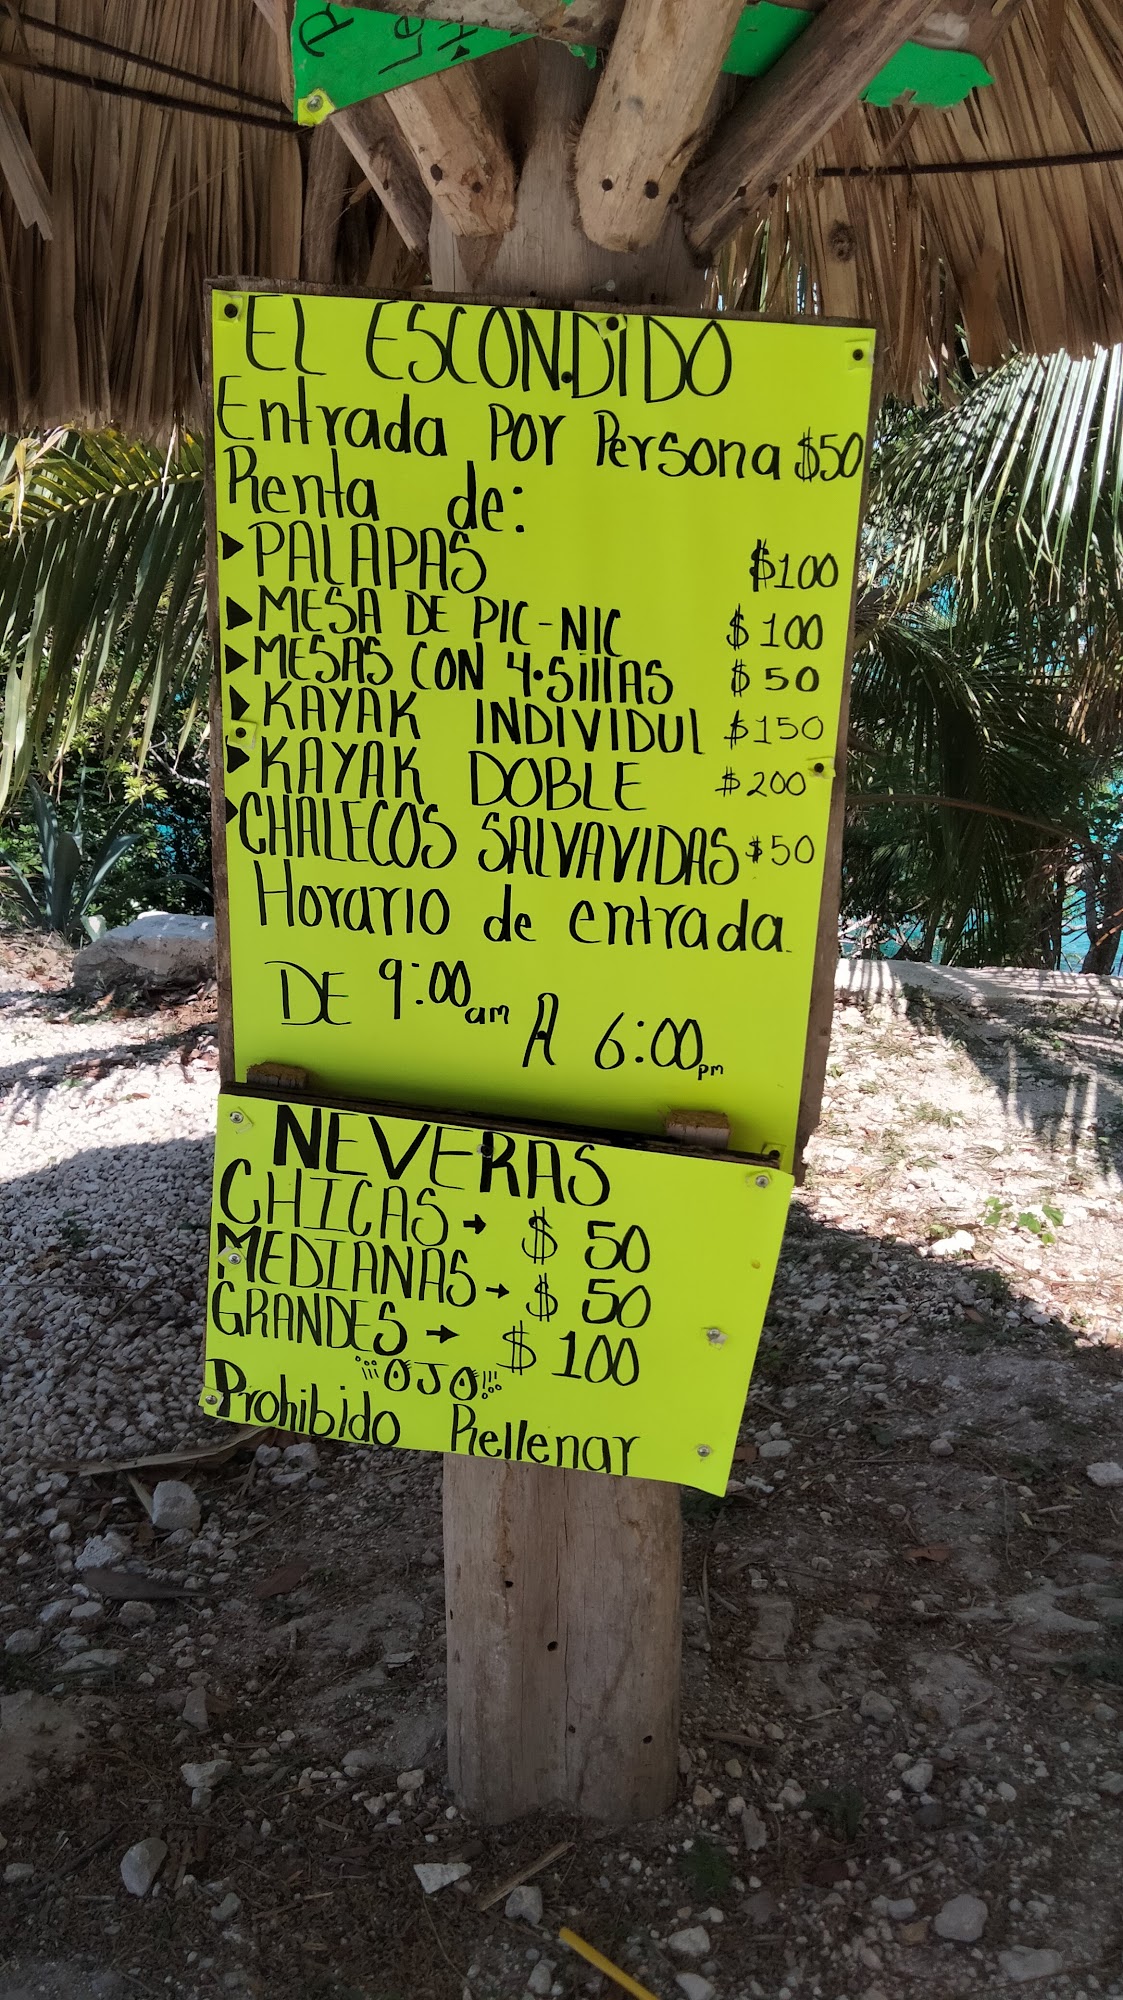 EL ESCONDIDO
Entrada Por Persona $50
Renta de:
PALAPAS $100
MESA DE PIC-NIC $100
MESAS CON 4.SillAS $50
KAYAK INDIVIDUL $150
KAYAK DOBLE $200
CHALECOS SALVAVIDAS $50
Horario de entrada
DE 9:00am A 6:00pm
NEVERAS
CHICAS → $50
MEDIANAS → $50
GRANDES → $100
¡¡¡OJO!!!
Prohibido Rellenar